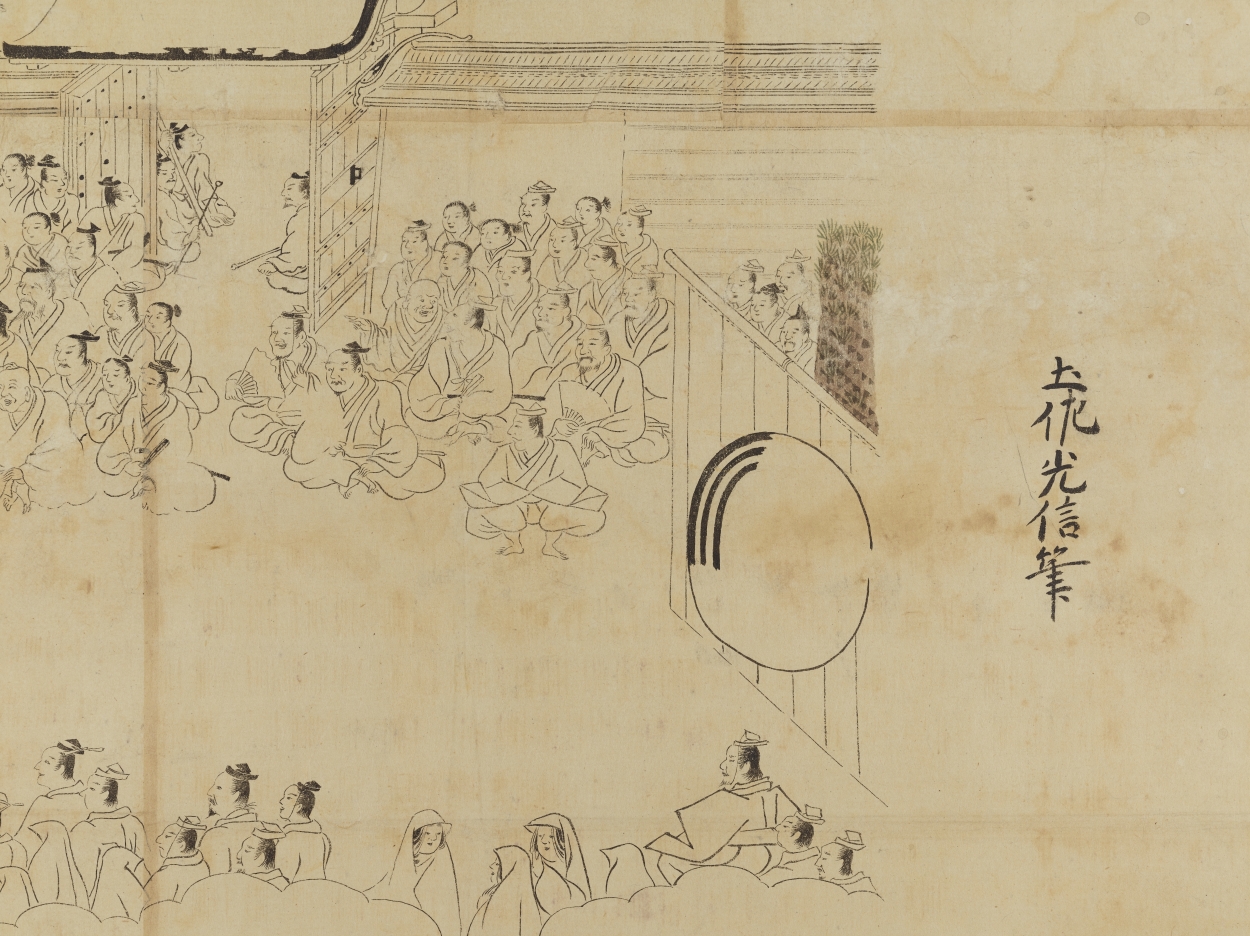 土佐光信筆